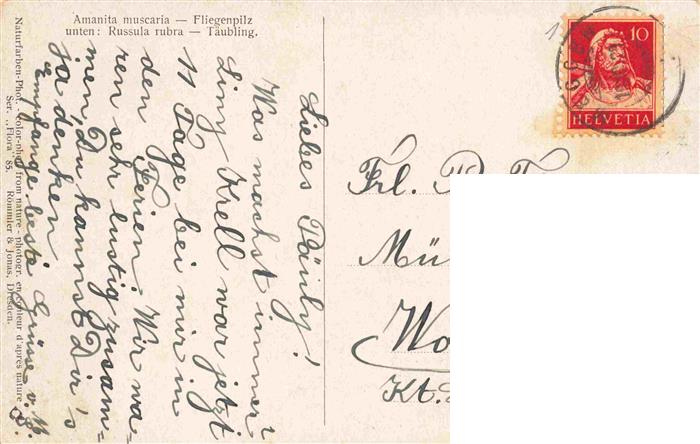 Amanita muscaria — Fliegenpilz
unten: Russula rubra — Täubling.
Liebes Päuly!
Was machst immer?
Liny Krell war jetzt
11 Tage bei mir in
den Ferien. Wir wa-
ren sehr lustig zusam-
men, Du kannst Dir's
ja denken
Empfange beste Grüsse v. M.
Naturfarben-Phot. - color-phot. from nature - photogr. en couleur d'après nature
Ser. „Flora" 85. Römmler & Jonas, Dresden.
10
HELVETIA
Frl.
Kt.